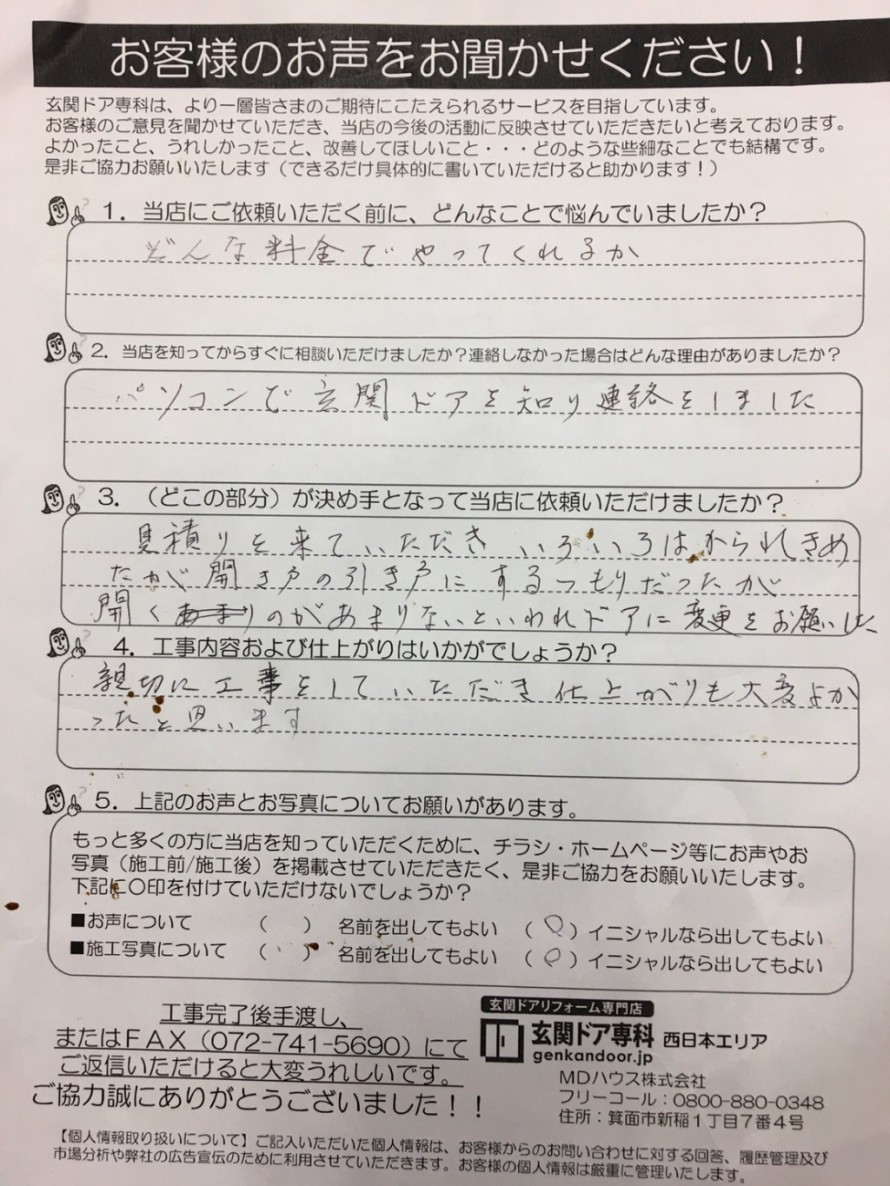 お客様のお声をお聞かせください！
玄関ドア専科は、より一層皆さまのご期待にこたえられるサービスを目指しています。
お客様のご意見を聞かせていただき、当店の今後の活動に反映させていただきたいと考えております。
よかったこと、うれしかったこと、改善してほしいこと・・・どのような些細なことでも結構です。
是非ご協力お願いいたします（できるだけ具体的に書いていただけると助かります！）
1．当店にご依頼いただく前に、どんなことで悩んでいましたか？
どんな料金でやってくれるか
2．当店を知ってからすぐに相談いただけましたか？連絡しなかった場合はどんな理由がありましたか？
パソコンで玄関ドアを知り連絡をしました
3．（どこの部分）が決め手となって当店に依頼いただけましたか？
見積りを来ていただき いろいろはかられきめ
たが開き戸の引き戸にするつもりだったが
開くのがあまりないといわれドアに変更をお願いした
4．工事内容および仕上がりはいかがでしょうか？
親切に工事をしていただき仕上がりも大変よか
ったと思います
5．上記のお声とお写真についてお願いがあります。
もっと多くの方に当店を知っていただくために、チラシ・ホームページ等にお声やお
写真（施工前/施工後）を掲載させていただきたく、是非ご協力をお願いいたします。
下記に〇印を付けていただけないでしょうか？
■お声について （ ） 名前を出してもよい （〇）イニシャルなら出してもよい
■施工写真について （ ） 名前を出してもよい （〇）イニシャルなら出してもよい
工事完了後手渡し、
またはＦＡＸ（072-741-5690）にて
ご返信いただけると大変うれしいです。
ご協力誠にありがとうございました！！
玄関ドアリフォーム専門店
玄関ドア専科 西日本エリア
genkandoor.jp
ＭＤハウス株式会社
フリーコール：0800-880-0348
住所：箕面市新稲１丁目７番４号
【個人情報取り扱いについて】ご記入いただいた個人情報は、お客様からのお問い合わせに対する回答、履歴管理及び
市場分析や弊社の広告宣伝のために利用させていただきます。お客様の個人情報は厳重に管理いたします。